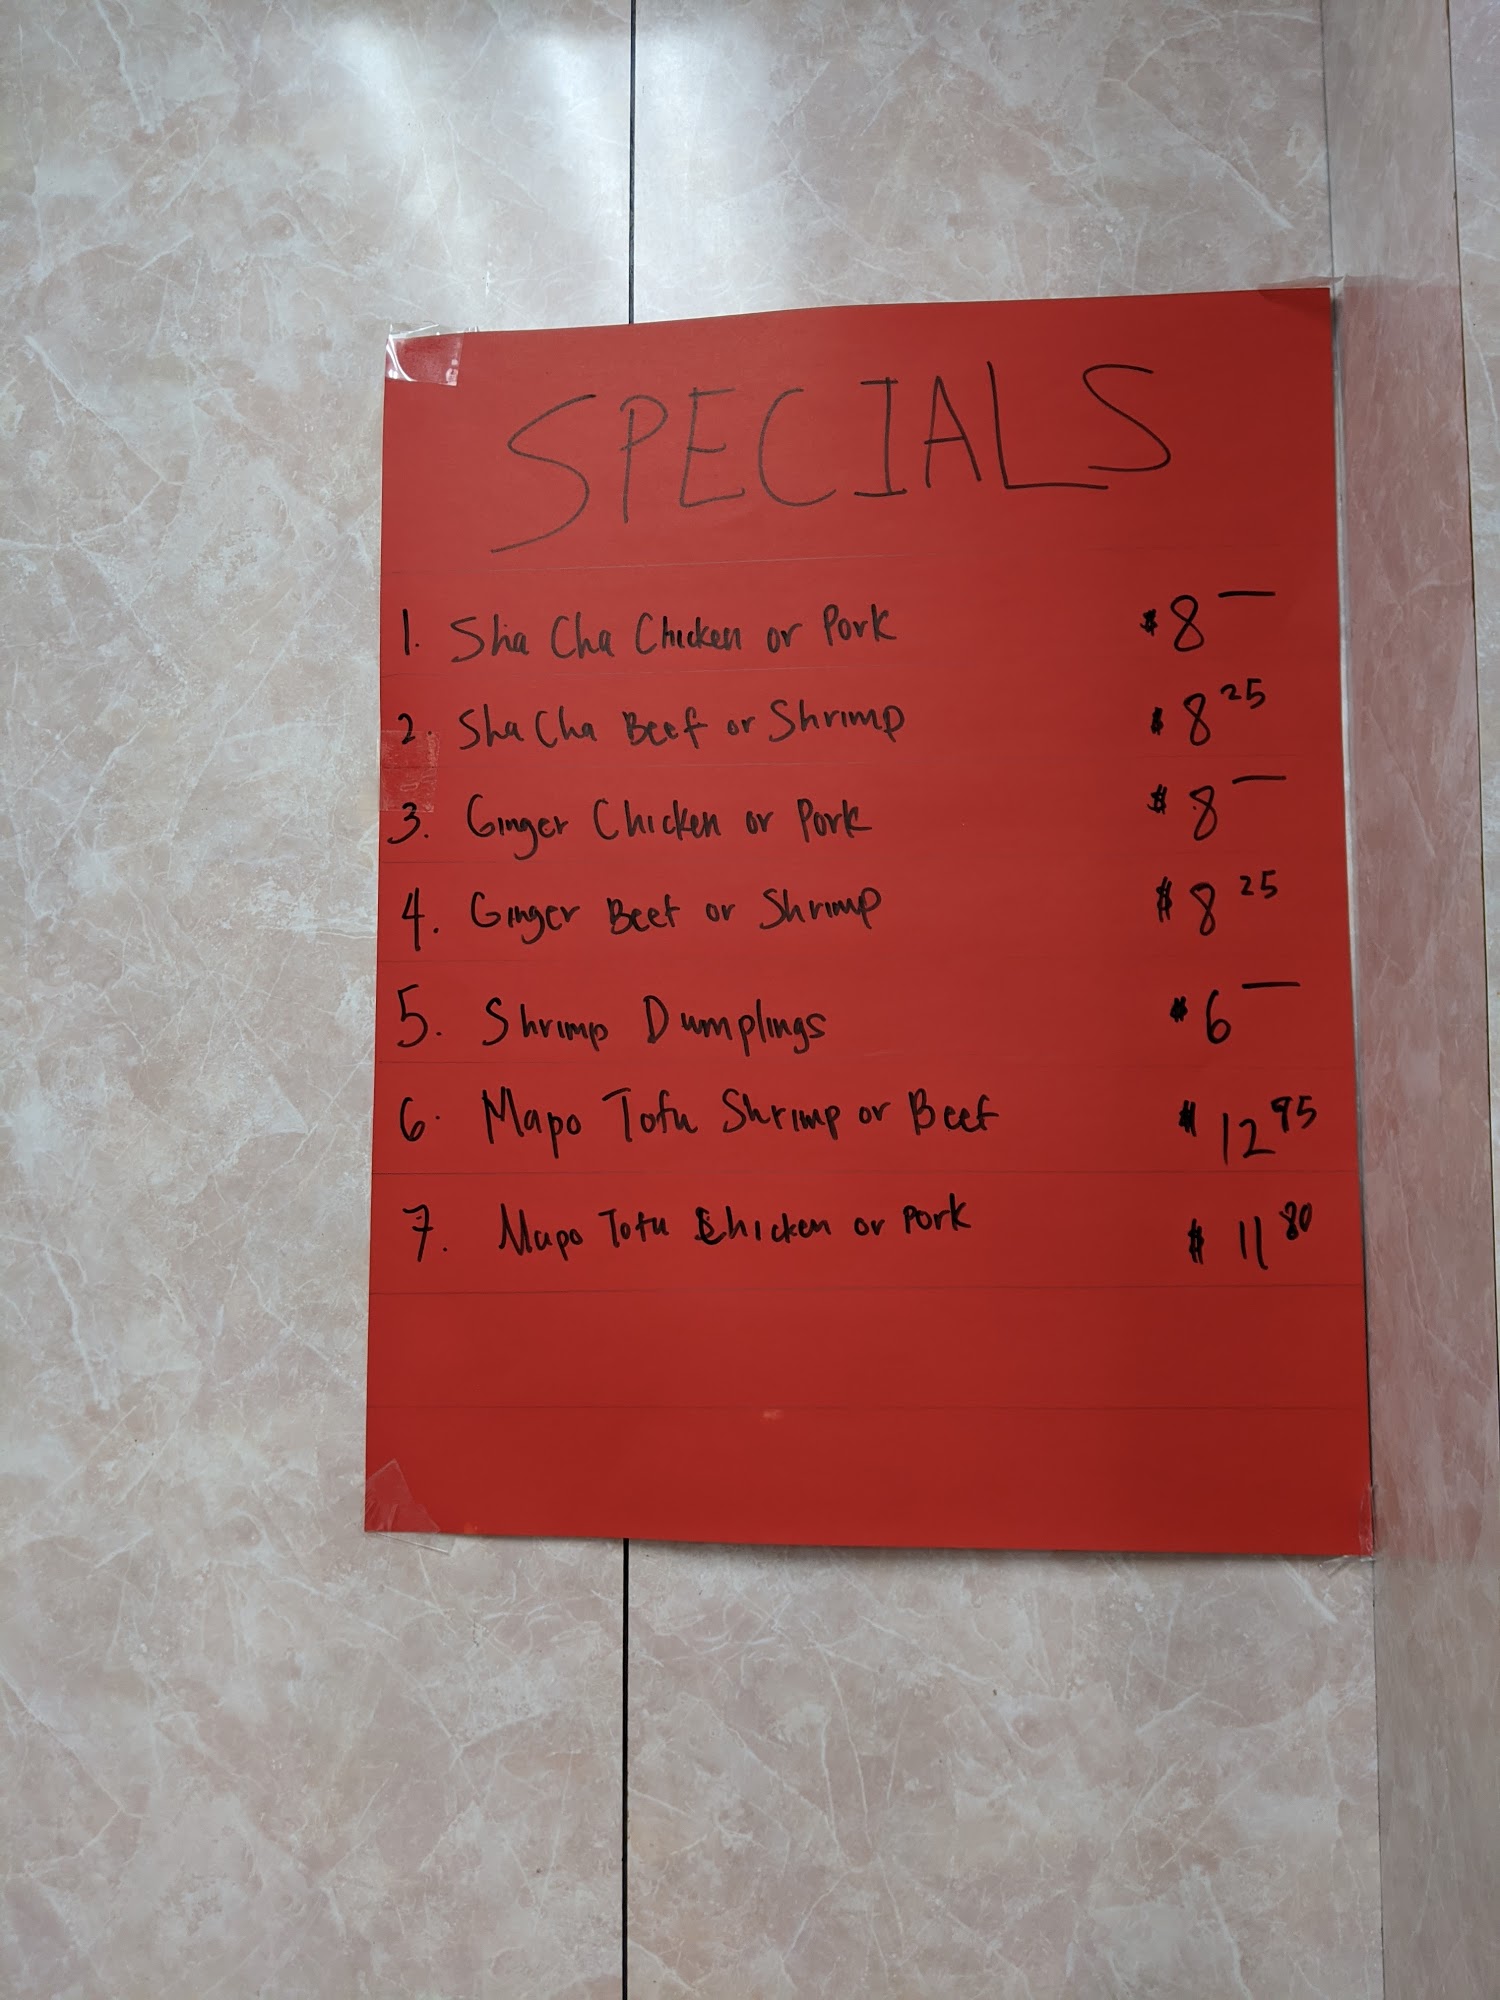 SPECIALS
1. Sha Cha Chicken or Pork $8—
2. Sha Cha Beef or Shrimp $8 25
3. Ginger Chicken or Pork $8—
4. Ginger Beef or Shrimp $8 25
5. Shrimp Dumplings $6—
6. Mapo Tofu Shrimp or Beef $12 95
7. Mapo Tofu Chicken or Pork $11 80